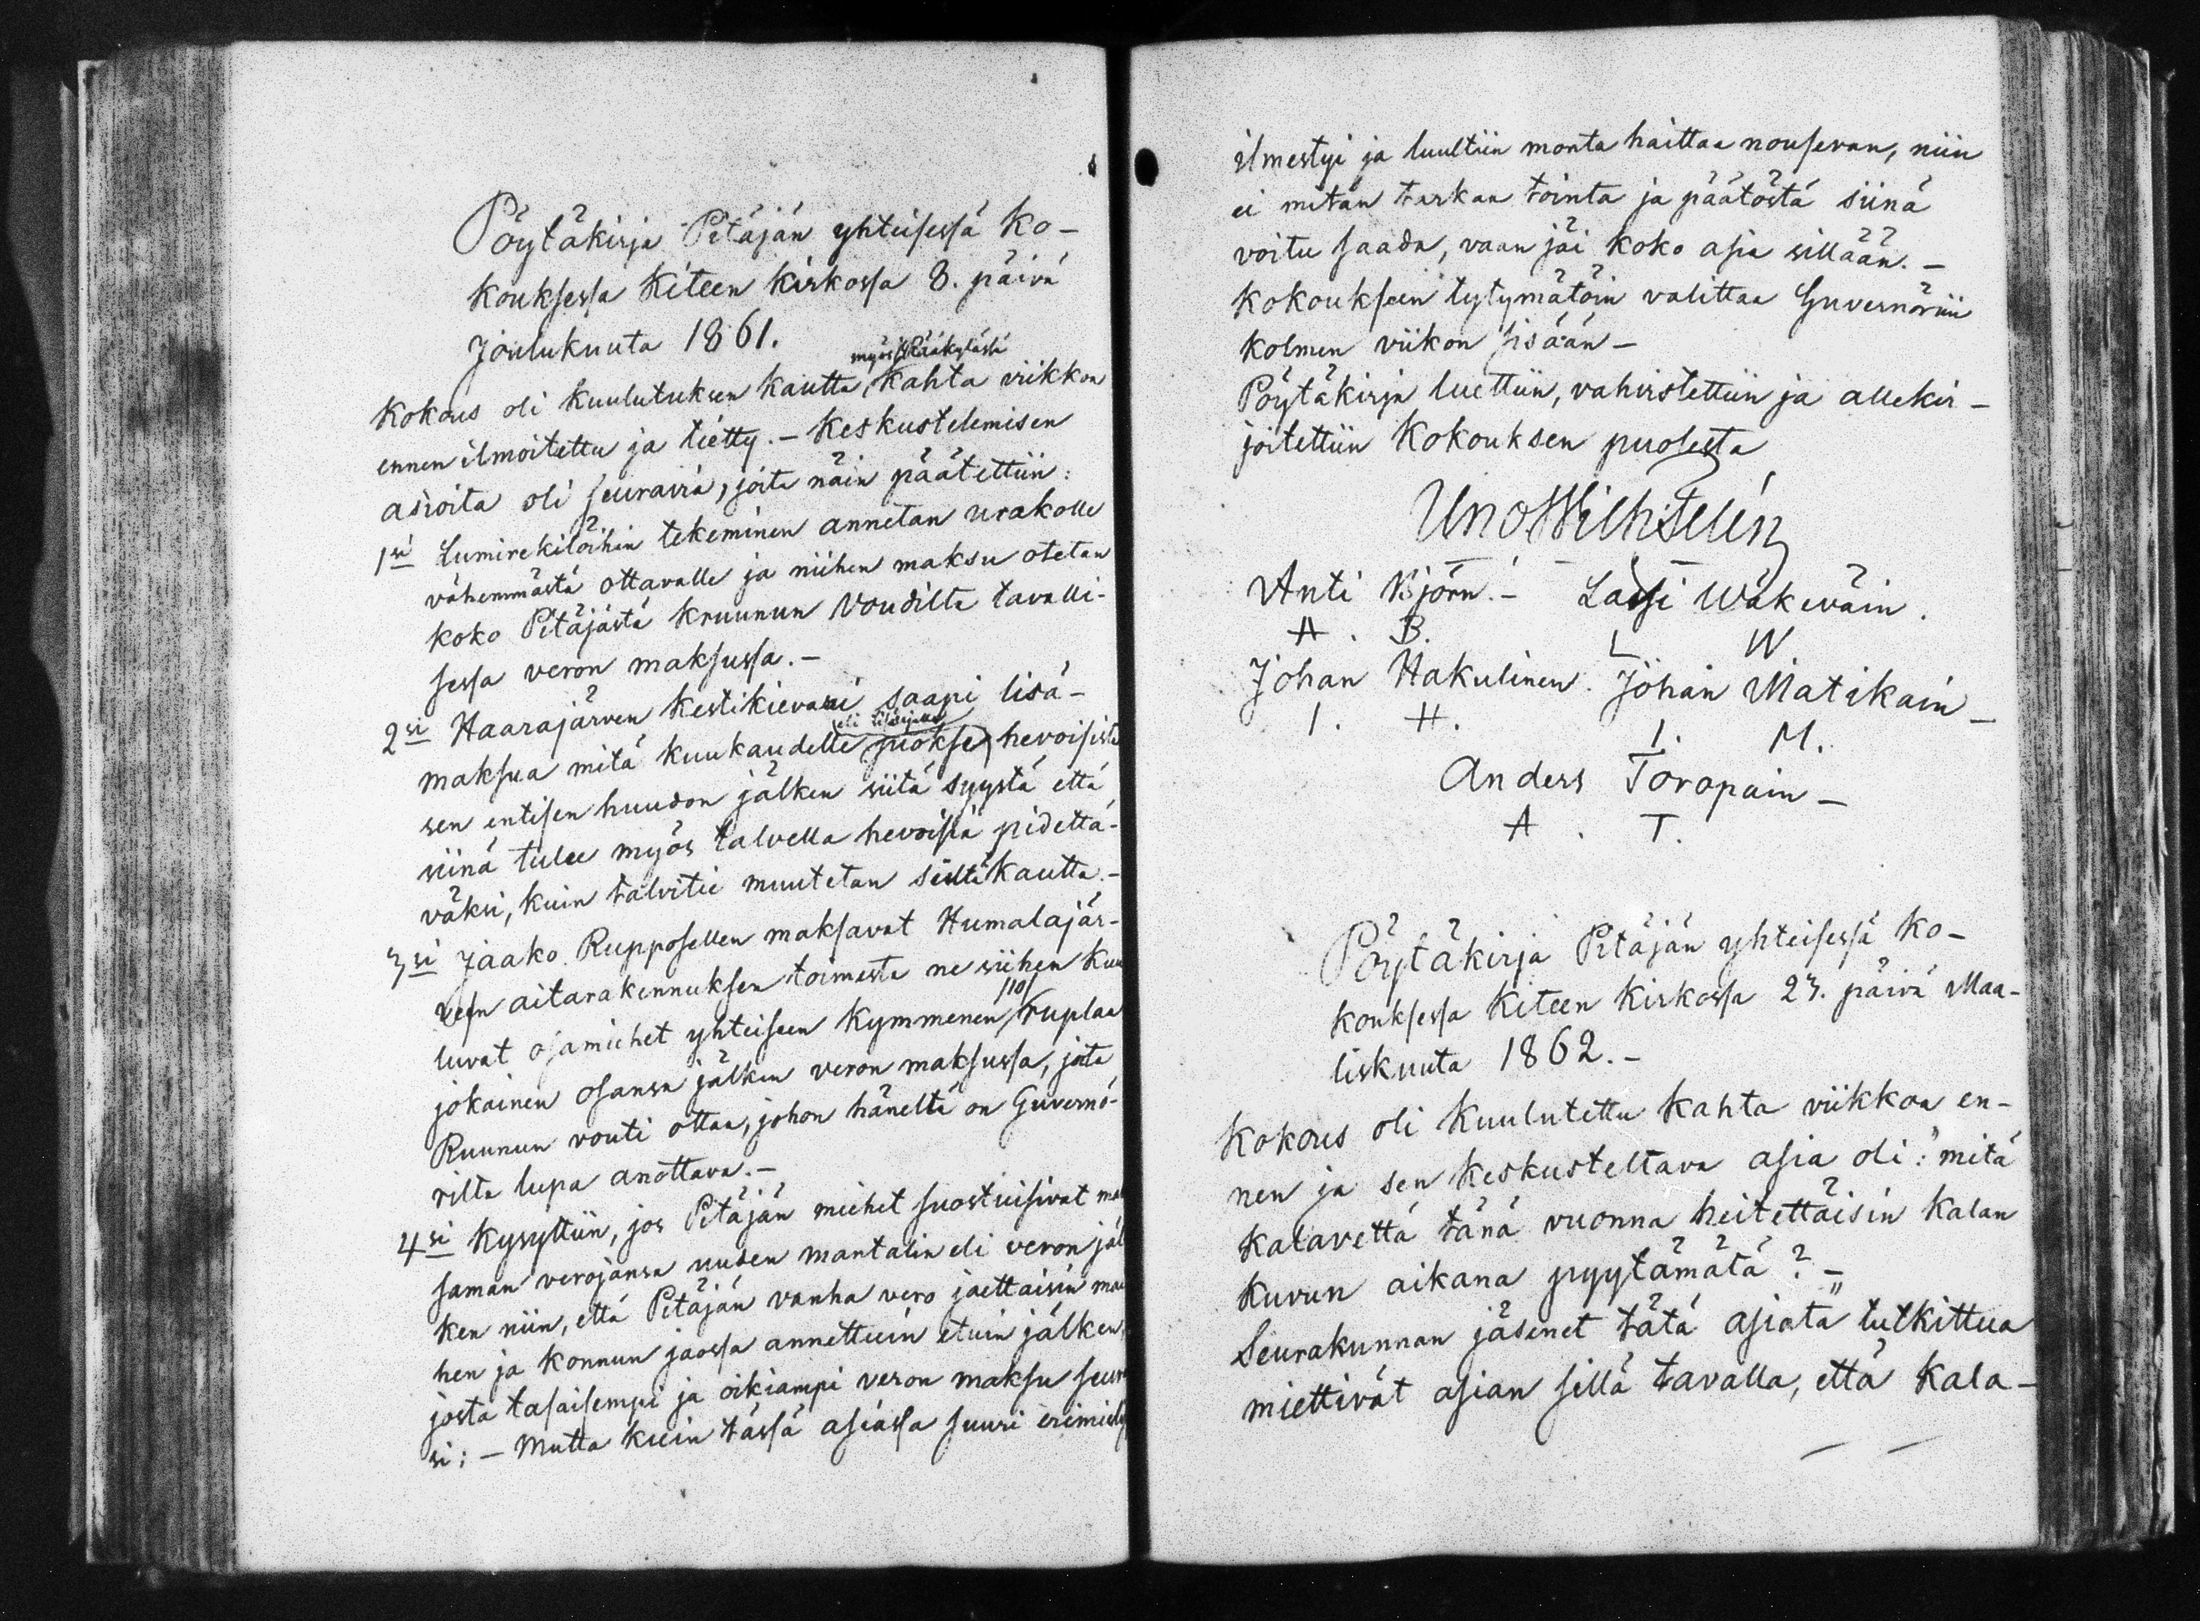 Pöytäkirja Pitäjän yhteisessä Ko-
kouksessa Kiteen kirkossa 8. päivä
Joulukuuta 1861.
myös Rääkylässä
Kokous oli kuulutuksen kautta kahta viikkoa
ennen ilmoitettu ja tietty. - Keskustelemisen
asioita oli seuravia, joita näin päätettiin:
1si Lumirekilöihin tekeminen annetan urakolle
vähemmästä ottavalle ja niihen maksu otetan
koko Pitäjästä kruunun voudilta tavalli-
sessa veron maksussa. -
2si Haarajärven kestikievari saapi lisä-
eli lisäjuok
maksua mitä kuukaudelle juokse hevoisista
sen entisen huudon jälken siitä syystä että
siinä tulee myös talvella hevoisia pidettä-
väksi, kuin talvitie muutetan sieltä kautta. -
3si Jaako Rupposellen maksavat Humalajär-
ven aitarakennuksen toimesta ne siihen kuu
luvat osamiehet yhteiseen kymmenen /10/ ruplaa
jokainen osansa jälken veron maksussa, jota
Ruunun vouti ottaa, johon häneltä on Guvernö-
rilta lupa anottava. -
4si Kysyttiin, jos Pitäjän miehet suostuisivat mak
saman verojansa uuden mantalin eli veron jäl
ken niin, että Pitäjän vanha vero jaettaisin maa
hen ja konnun jaossa annettuin etuin jälken,
josta tasaisempi ja oikiampi veron maksu seura
si: - Mutta kuin tässä asiassa suuri erimiely
ilmestyi ja luultiin monta haittaa nousevan, niin
ei mitän tarkaa tointa ja päätöstä siinä
voitu saada, vaan jäi koko asia sillään. -
Kokouksein tytymätöin valittaa Guvernöriin
kolmen viikon sisään -
Pöytäkirja luettiin, vahvistettiin ja allekir-
joitettiin Kokouksen puolesta
Uno Wilh: Telén
Anti Björn. - Lassi Wäkeväin.
A. B. L W
Johan Hakulinen. Johan Matikain -
I. H. I. M.
Anders Toropain -
A. T.
Pöytäkirja Pitäjän yhteisessä Ko-
kouksessa Kiteen Kirkossa 23. päivä Maa-
liskuuta 1862. -
Kokous oli kuulutettu kahta viikkoa en-
nen ja sen keskusteltava asia oli: "mitä
kalavettä tänä vuonna heitettäisin kalan
kuvun aikana pyytämätä? - "
Seurakunnan jäsenet tätä asiata tutkittua
miettivät asian sillä tavalla, että kala-